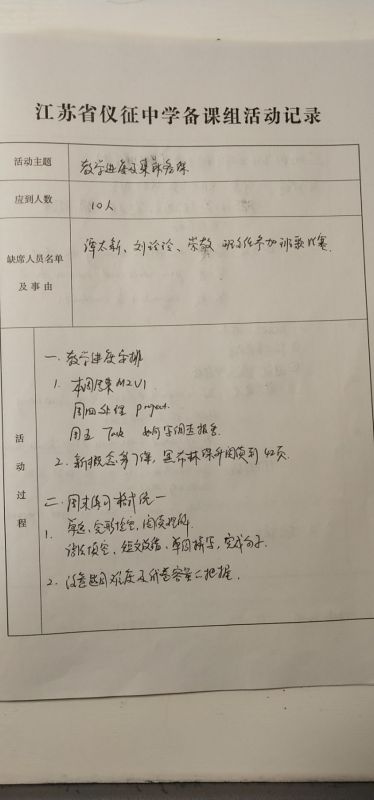 江苏省仪征中学备课组活动记录
活动主题
教学进度及集体备课
应到人数
10人
缺席人员名单
及事由
谭太新、刘玲玲、崇敏 班主任参加班歌比赛
活动过程
一、教学进度安排
1. 本周结束M2U1
周四处理 project.
周五 Task 如何写调查报告
2. 新概念第7课,
阅读到42页.
二、周末练习格式统一
1. 单选、完形填空、阅读理解.
词汇填空、短文改错、单词拼写、完成句子
2. 注意题目难度及试卷容量的把握.